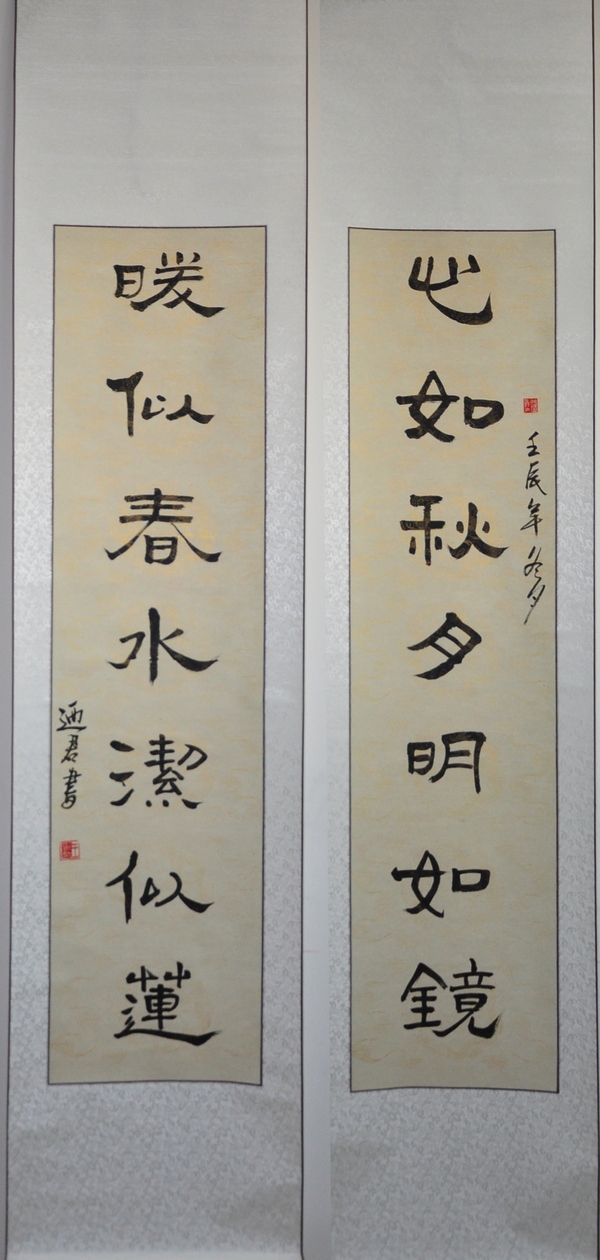 壬辰年冬月
心如秋月明如鏡
暖似春水潔似蓮
迺君書